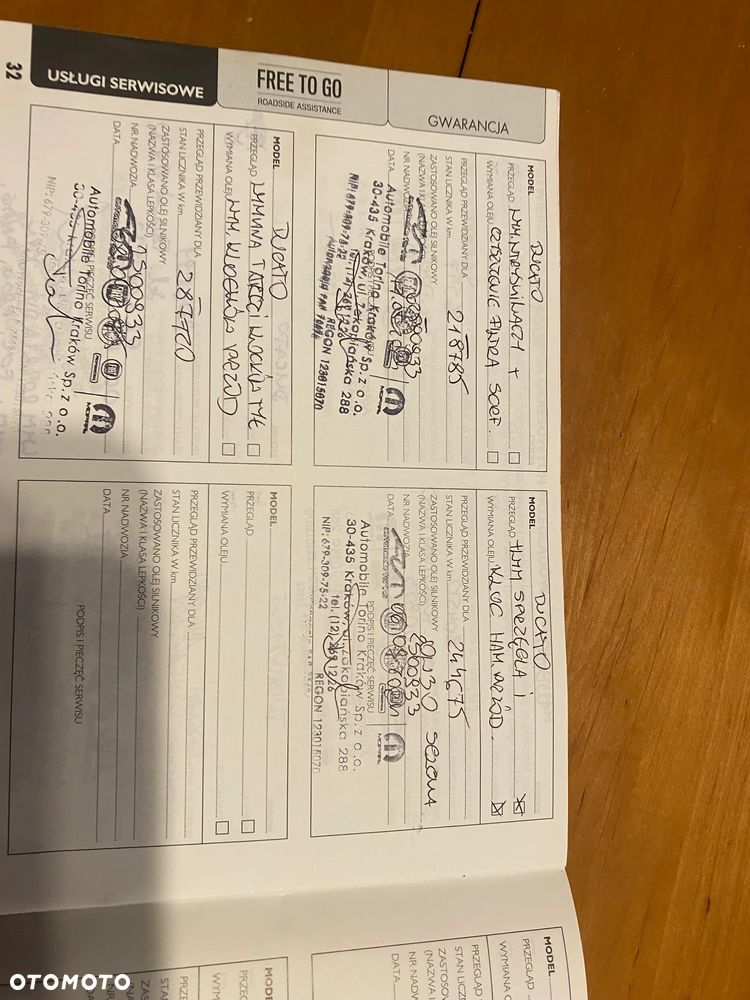 32
USŁUGI SERWISOWE
FREE TO GO
ROADSIDE ASSISTANCE
GWARANCJA
MODEL DUCATO
PRZEGLĄD WYM. WTRYSKIWACZY +
WYMIANA OLEJU CZYSZCZENIE FILTRA
PRZEGLĄD PRZEWIDZIANY DLA
STAN LICZNIKA W km. 218785
ZASTOSOWANO OLEJ SILNIKOWY
(NAZWA I KLASA LEPKOŚCI)
NR NADWOZIA
DATA
Automobile Torino Kraków Sp. z o.o.
30-435 Kraków, ul. Zakopiańska 288
tel. (12) 269 12 26
NIP: 679-309-75-22 REGON 123015070
MODEL DUCATO
PRZEGLĄD WYM SPRZĘGŁA I
WYMIANA OLEJU KLOC HAM. PRZÓD.
PRZEGLĄD PRZEWIDZIANY DLA
STAN LICZNIKA W km. 244675
ZASTOSOWANO OLEJ SILNIKOWY
(NAZWA I KLASA LEPKOŚCI) 0W30 SELENIA
NR NADWOZIA 2500933
DATA
PODPIS I PIECZĘĆ SERWISU
Automobile Torino Kraków Sp. z o.o.
30-435 Kraków, ul. Zakopiańska 288
tel. (12) 269 12 26
NIP: 679-309-75-22 REGON 123015070
MODEL DUCATO
PRZEGLĄD WYMIANA TARCZ I KLOCKÓW TYŁ
WYMIANA OLEJU WYM. KLOCKÓW PRZÓD
PRZEGLĄD PRZEWIDZIANY DLA
STAN LICZNIKA W km. 287720
ZASTOSOWANO OLEJ SILNIKOWY
(NAZWA I KLASA LEPKOŚCI)
NR NADWOZIA 2500933
DATA
PIECZĘĆ SERWISU
Automobile Torino Kraków Sp. z o.o.
MOPAR
MODEL
PRZEGLĄD
WYMIANA OLEJU
PRZEGLĄD PRZEWIDZIANY DLA
STAN LICZNIKA W km.
ZASTOSOWANO OLEJ SILNIKOWY
(NAZWA I KLASA LEPKOŚCI)
NR NADWOZIA
DATA
PODPIS I PIECZĘĆ SERWISU
MODEL
PRZEGLĄD
WYMIANA O
PRZEGLĄD PR
STAN LICZN
ZASTOSOW
(NAZWA I KL
NR NADWO
DATA
MODEL
PRZEGLĄD
WYM
PRZE
STAN
ZAST
(NAZ
OTOMOTO